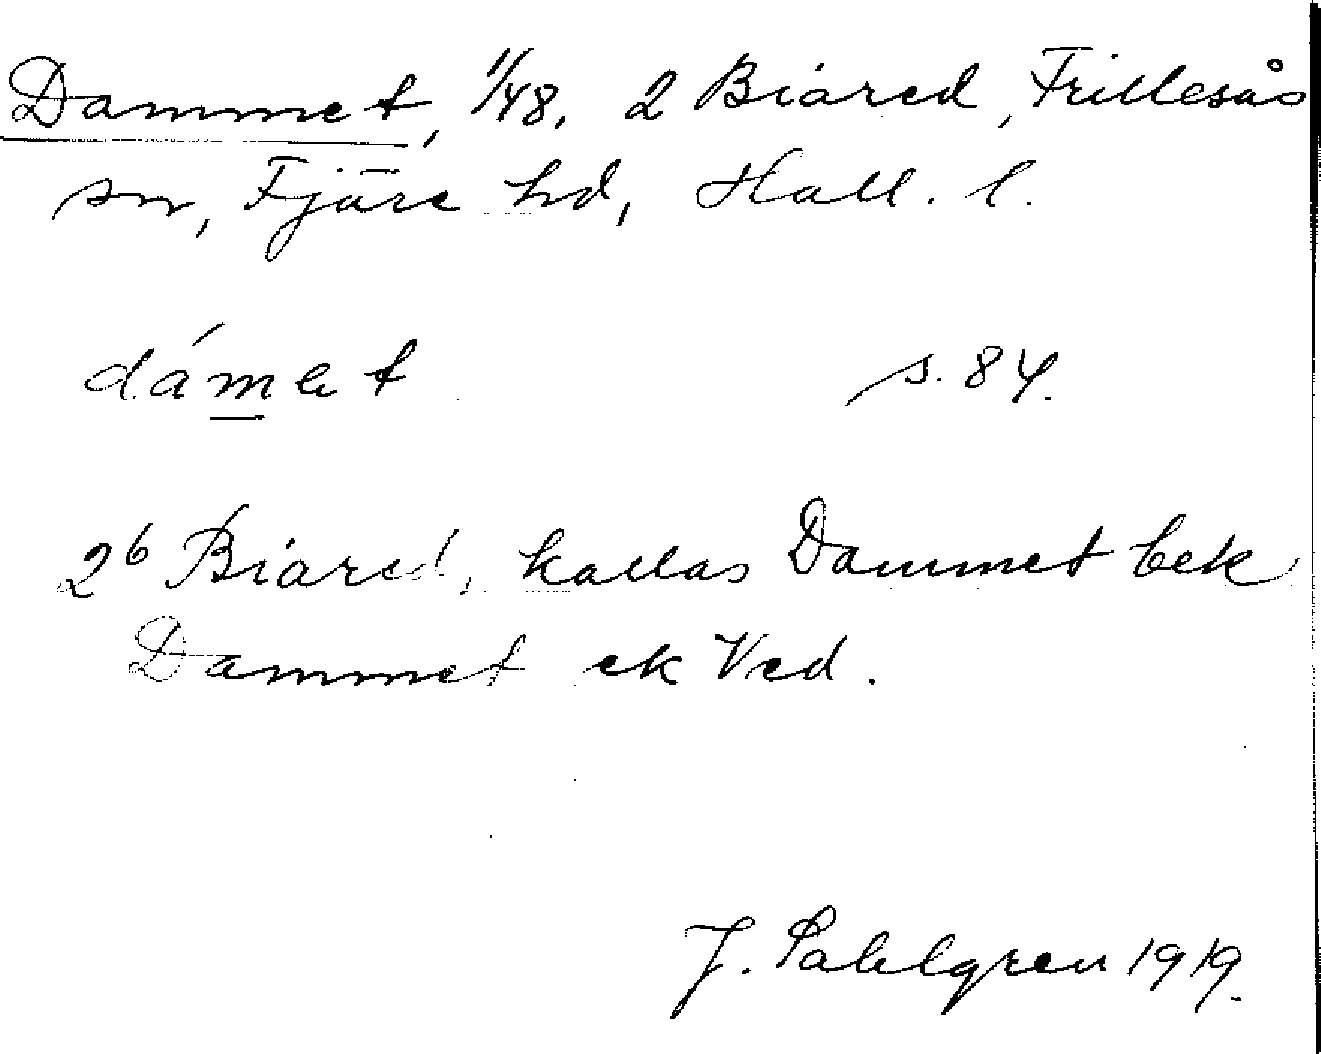 Dammet, 1/48, 2 Biared, Frillesås
sn, Fjäre hd, Hall. l.
dámet s. 84.
2b Biared, kallas Dammet bek
Dammet ek Ved.
J. Sahlgren 1919.